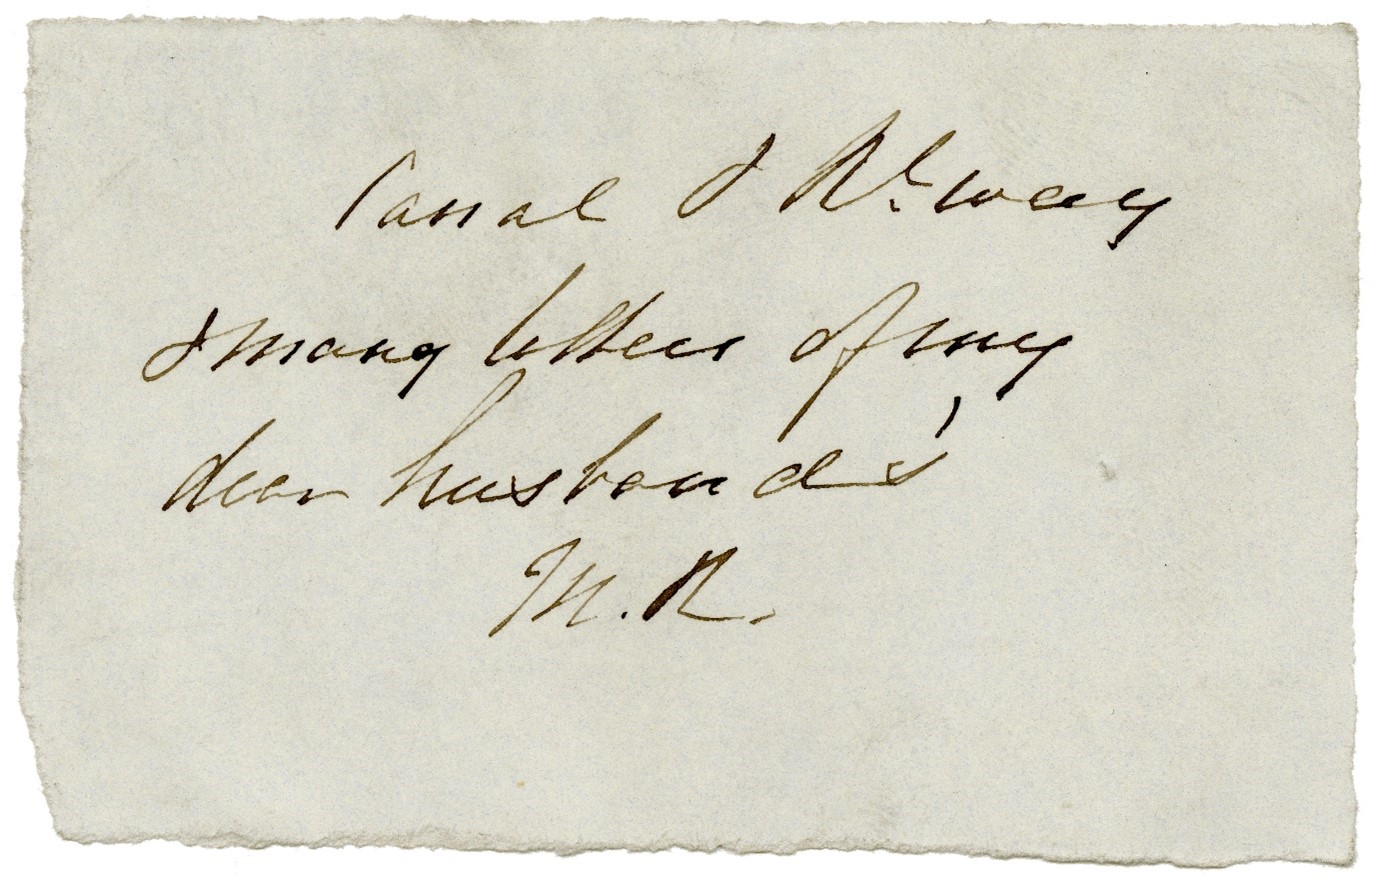 Canal & Rl. way
& many letters of my
dear husband's
M. R.